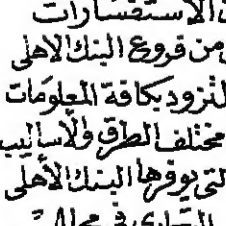 الاستفسارات
من فروع البنك الاهلى
لتزود بكافة المعلومات
مختلف الطرق والأساليب
التى يوفرها البنك الأهلى
التجارى فى مجال